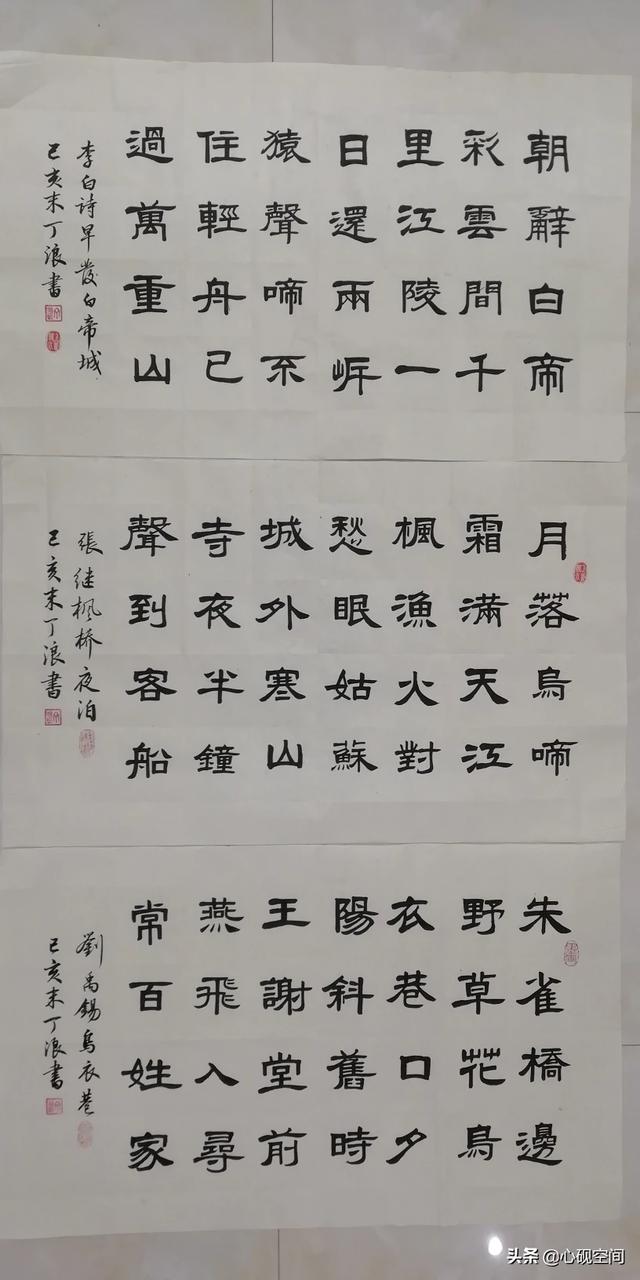 朝辭白帝
彩雲間千
里江陵一
日還兩岸
猿聲啼不
住輕舟已
過萬重山
李白詩早發白帝城
己亥末丁浪書
月落烏啼
霜滿天江
楓漁火對
愁眠姑蘇
城外寒山
寺夜半鐘
聲到客船
張继楓桥夜泊
己亥末丁浪書
朱雀橋邊
野草花烏
衣巷口夕
陽斜舊時
王謝堂前
燕飛入尋
常百姓家
劉禹錫烏衣巷
己亥末丁浪書
头条 @心砚空间